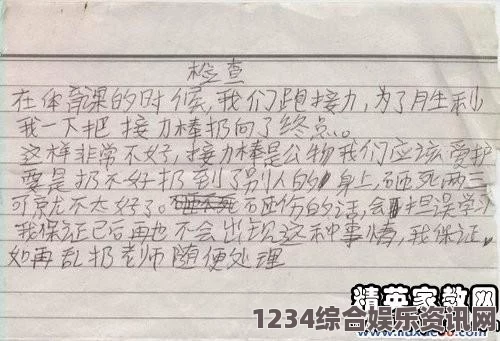 检查
在体育课的时候,我们跑接力,为了胜利
我一下把接力棒扔向了终点。
这样非常不好,接力棒是公物我们应该爱护
要是扔不好扔到了别人的身上,砸死两三
可就不太好了。砸伤的话,会担误学习
我保证已后再也不会出现这种事情,我保证
如再乱扔老师随便处理
精英家教网
1234综合娱乐资讯网